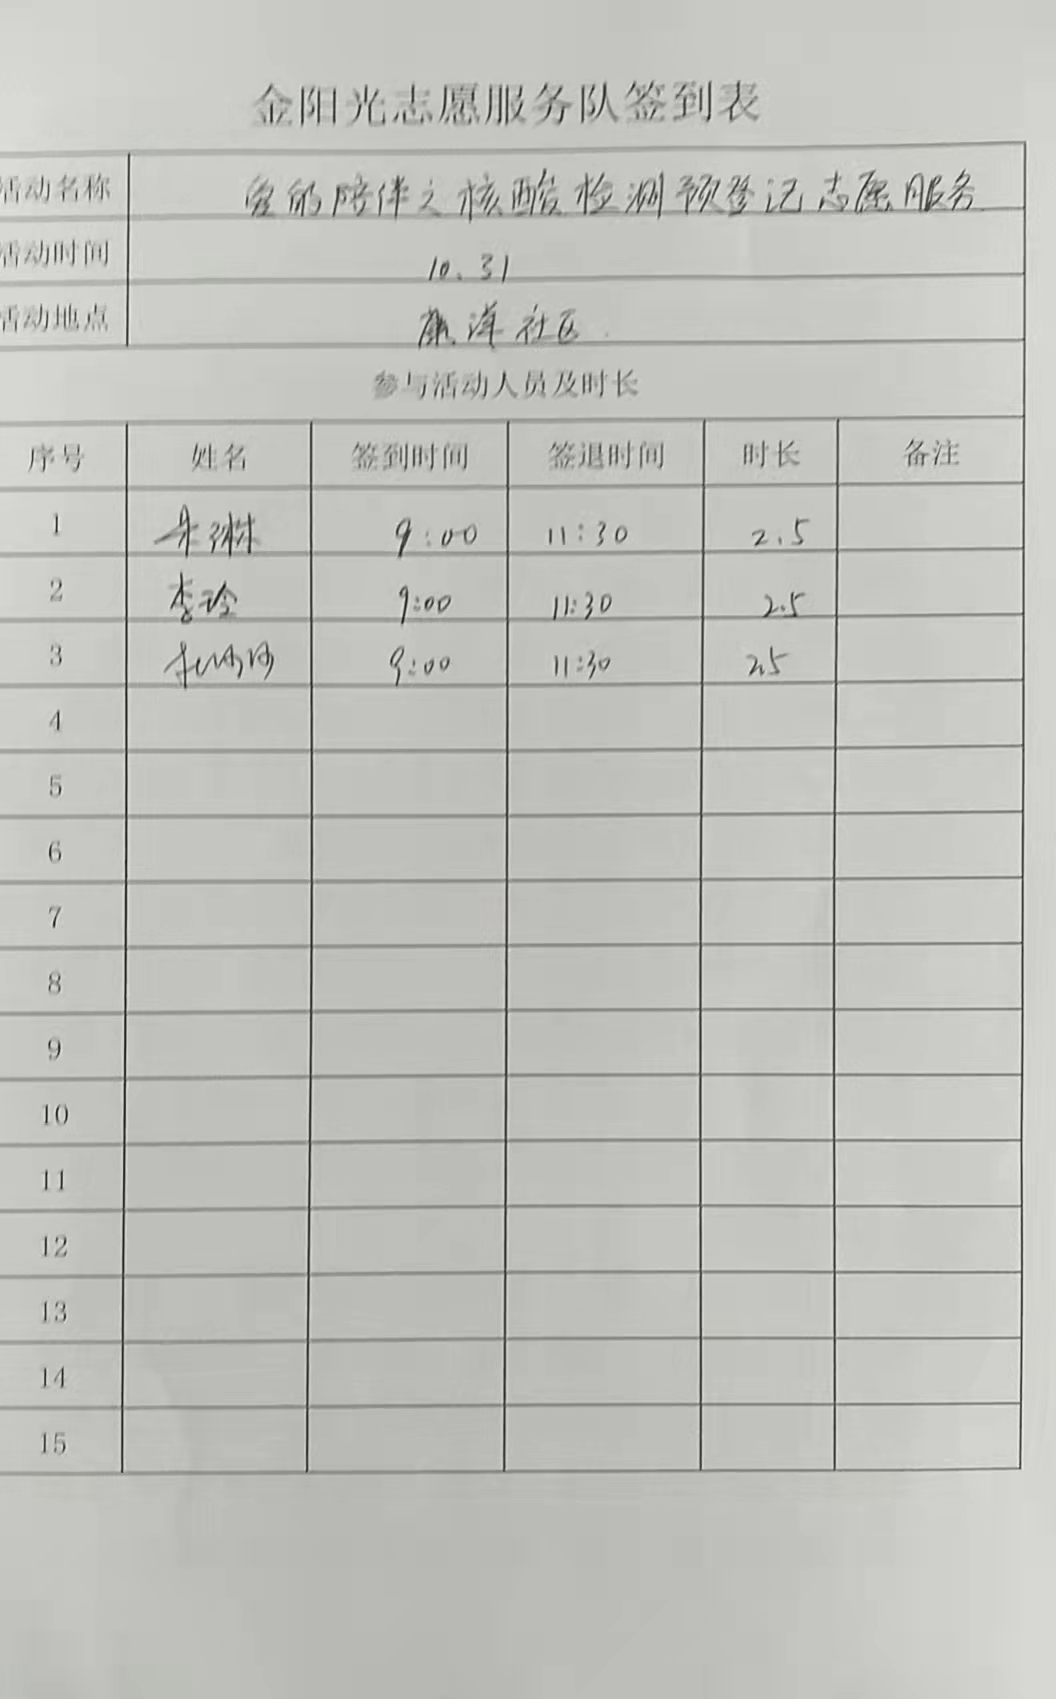 金阳光志愿服务队签到表
活动名称 爱的陪伴之核酸检测预登记志愿服务
活动时间 10.31
活动地点 康洋社区
参与活动人员及时长
序号 姓名 签到时间 签退时间 时长 备注
1 朱琳 9:00 11:30 2.5
2 李玲 9:00 11:30 2.5
3 9:00 11:30 2.5
4
5
6
7
8
9
10
11
12
13
14
15